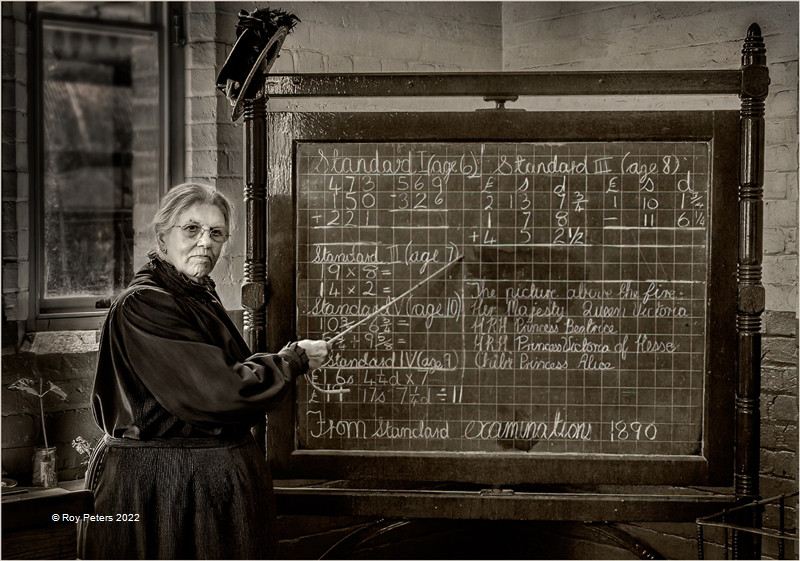 Standard I (age 6)
473 569
150 -326
+221
Standard III (age 8)
£ s d £ s d
2 13 7 3/4 1 10 1 3/4
1 7 8 - 11 6 1/4
+4 5 2 1/2
Standard II (age 7)
19 × 8 =
14 × 2 =
Standard V (age 10)
Standard IV (age 9)
£ 16s 44d × 7
17s ÷ 11
The picture above the fire:
Her Majesty Queen Victoria
HRH Princess Beatrice
HRH Princess Victoria of Hesse
Princess Alice
From Standard examinations 1890
© Roy Peters 2022